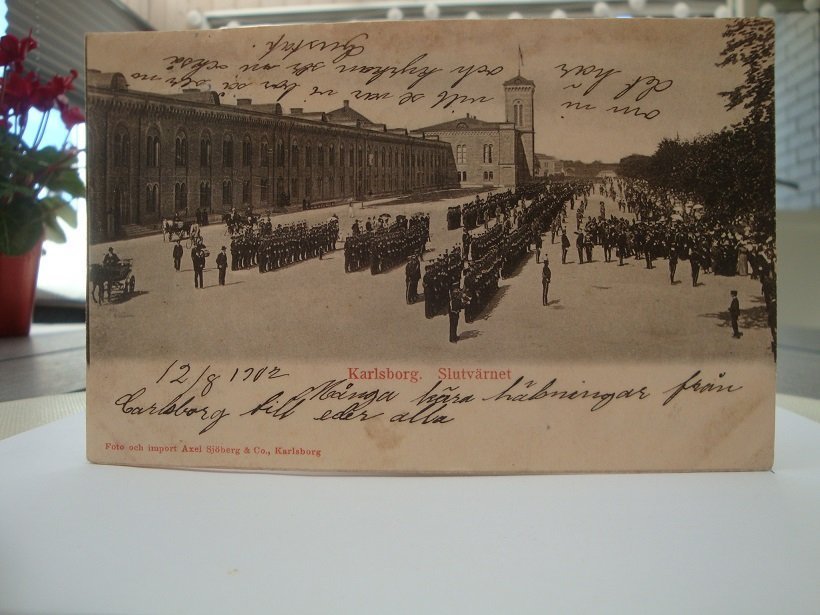 om ni vill se var vi bor så
det här och kyrkan ser ni också
Gustaf.
Karlsborg. Slutvärnet
12/8 1902 Många kära hälsningar från
Carlsborg till eder alla
Foto och import Axel Sjöberg & Co., Karlsborg